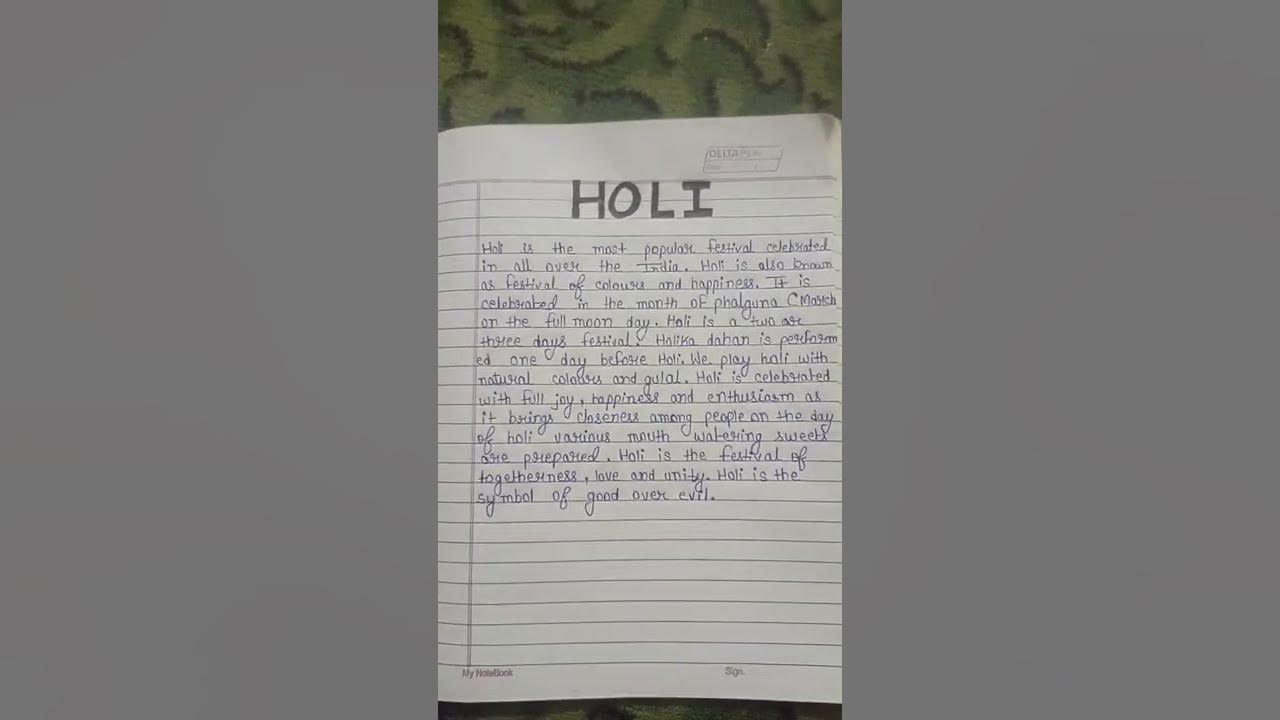 DELTA
HOLI
Holi is the most popular festival celebrated
in all over the India. Holi is also known
as festival of colours and happiness. It is
celebrated in the month of phalguna (March
on the full moon day. Holi is a two or
three days festival. Holika dahan is perform
ed one day before Holi. We play holi with
natural colours and gulal. Holi is celebrated
with full joy, happiness and enthusiasm as
it brings closeness among people on the day
of holi various mouth watering sweets
are prepared. Holi is the festival of
togetherness, love and unity. Holi is the
symbol of good over evil.
My NoteBook Sign.